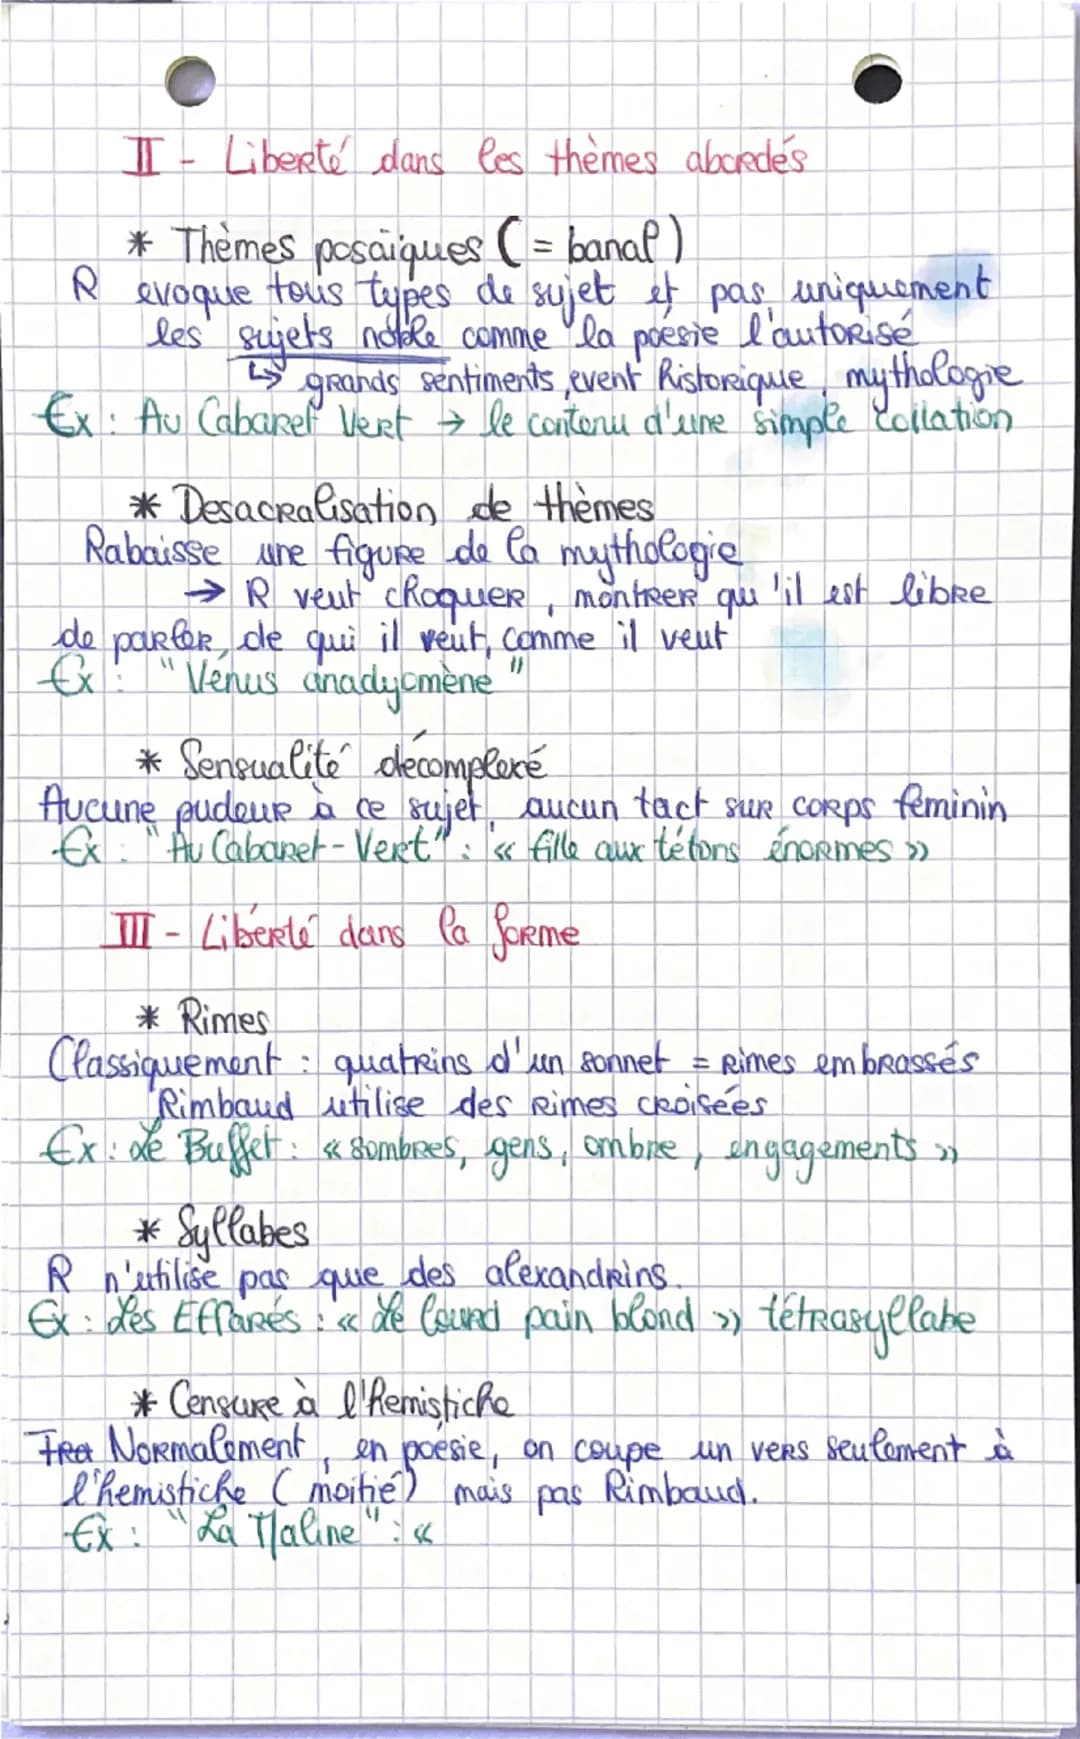 II - Liberté dans les thèmes abordés
* Thèmes posaïques ( = banal )
R evoque tous types de sujet et pas uniquement
les sujets noble comme la poésie l'autorisé
↳ grands sentiments, event historique, mythologie
Ex : Au Cabaret Vert → le contenu d'une simple collation
* Desacralisation de thèmes
Rabaisse une figure de la mythologie
→ R veut choquer, montrer qu'il est libre
de parler, de qui il veut, comme il veut
Ex : "Vénus anadyomène"
* Sensualité décomplexé
Aucune pudeur à ce sujet, aucun tact sur corps féminin
Ex : "Au Cabaret-Vert" : « fille aux tétons énormes »
III - Liberté dans la forme
* Rimes
Classiquement : quatrains d'un sonnet = rimes embrassés
Rimbaud utilise des rimes croisées
Ex : Le Buffet : « sombres, gens, ombre, engagements »
* Syllabes
R n'utilise pas que des alexandrins.
Ex : Les Effarés : « Le lourd pain blond » tétrasyllabe
* Censure à l'hemistiche
Normalement, en poésie, on coupe un vers seulement à
l'hemistiche ( moitié) mais pas Rimbaud.
Ex : "La Maline" : «